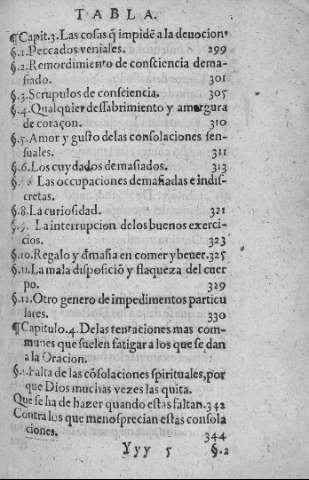 TABLA.
¶Capit.3. Las cosas q̃ impidē a la deuocion
§.1. Peccados veniales. 299
§.2. Remordimiento de consciencia dema-
siado. 301
§.3. Scrupulos de consciencia. 305
§.4. Qualquier dessabrimiento y amargura
de coraçon. 310
§.5. Amor y gusto delas consolaciones sen-
suales. 311
§.6. Los cuydados demasiados. 313
Las occupaciones demasiadas e indis-
cretas.
§.8. La curiosidad. 321
§.9. La interrupcion delos buenos exerci-
cios. 323
§.10. Regalo y dmasia en comer y beuer. 325
§.11. La mala disposiciō y flaqueza del cuer
po. 329
§.12. Otro genero de impedimentos particu
lares. 330
¶Capitulo.4. Delas tentaciones mas com-
munes que suelen fatigar a los que se dan
a la Oracion.
§.1. Falta de las cōsolaciones spirituales, por
que Dios muchas vezes las quita.
Que se ha de hazer quando estas faltan. 342
Contra los que menosprecian estas consola
ciones. 344
Yyy 5 §.2